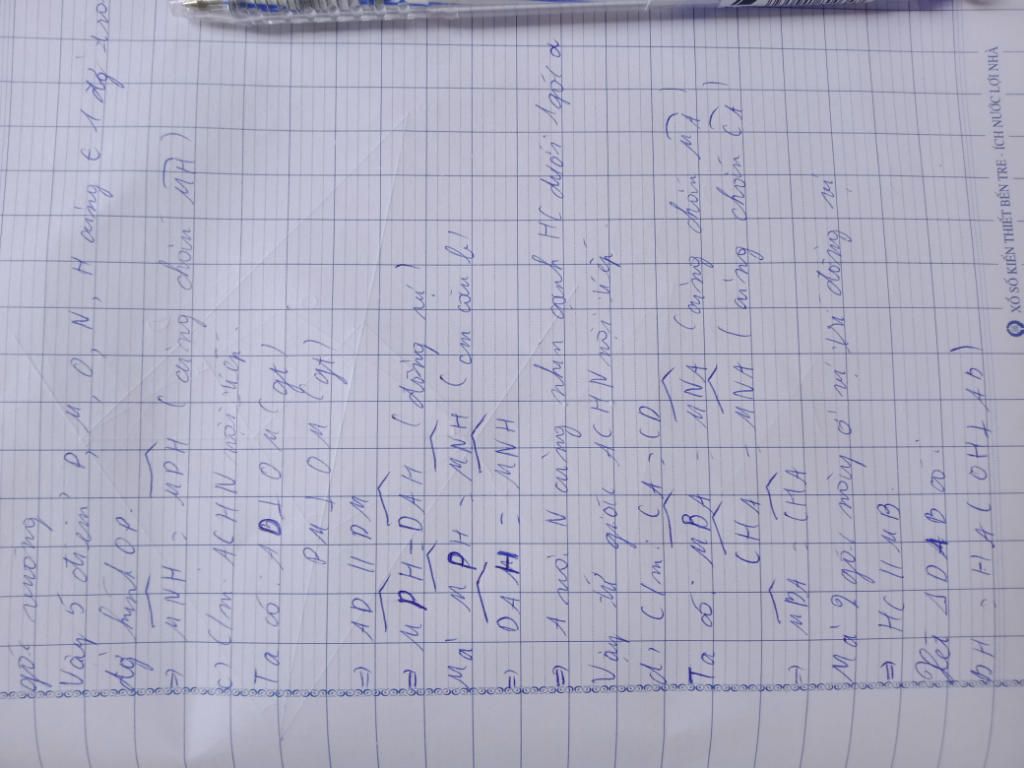 góc vuông
Vậy 5 điểm P, M, O, N, H cùng ∈ 1 đg tròn
đg kính OP.
⇒ MNH = MPH (cùng chắn MH)
c) C/m: ACHN nội tiếp.
Ta có: AD ⊥ OM (gt)
PM ⊥ OM (gt)
⇒ AD // PM
⇒ MPH = DAH (đồng vị)
Mà MPH = MNH (cm câu b)
⇒ DAH = MNH
⇒ A và N cùng nhìn cạnh HC dưới 1 góc α
Vậy tứ giác ACHN nội tiếp.
d) C/m: CA = CD
Ta có: MBA = MNA (cùng chắn MA)
CHA = MNA (cùng chắn CA)
⇒ MBA = CHA
Mà 2 góc này ở vị trí đồng vị
⇒ HC // MB
Xét Δ DAB có:
BH = HA (OH ⊥ AB)
XỔ SỐ KIẾN THIẾT BẾN TRE - ÍCH NƯỚC LỢI NHÀ